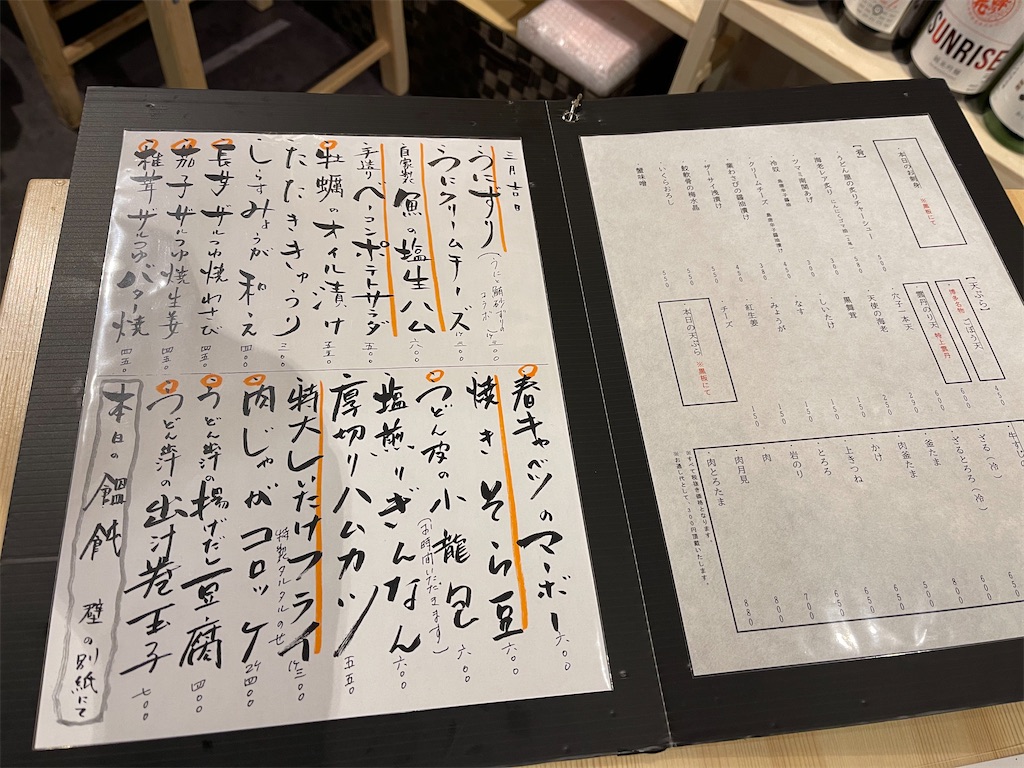 三月吉日
うにずり
うにクリームチーズ
自家製 魚の塩生ハム 六〇〇
手造り ベーコンポテトサラダ 五〇〇
牡蠣のオイル漬け 五五〇
たたききゅうり 三〇〇
しらすみょうが和え 四〇〇
長芋サルつゆ焼わさび 四五〇
茄子サルつゆ焼生姜 四五〇
椎茸サルつゆバター焼 四五〇
春キャベツのマーボー 六〇〇
焼きそら豆 六〇〇
うどん皮の小龍包 六〇〇
(お時間いただきます)
塩煎りぎんなん 六〇〇
厚切りハムカツ 五五〇
特大しいたけフライ
特製タルタルのせ
肉じゃがコロッケ
うどん弊の揚げだし豆腐 四〇〇
うどん弊の出汁巻玉子 七〇〇
本日の饂飩 壁の別紙にて
本日のお刺身 ※黒板にて
【肴】
・うどん屋の炙りチャーシュー 500
・海老レア炙り 500
・ツマミ南関あげ 300
・冷奴 380
・クリームチーズ 450
・葉わさびの醤油漬け
・ザーサイ浅漬け 550
・鮫軟骨の梅水晶 550
・いくらおろし 550
・蟹味噌
【天ぷら】
博多名物 ごぼう天 450
・雲丹のり天 特上雲丹 600
・穴子一本天 600
・天使の海老 250
・黒舞茸 250
・しいたけ 150
・なす 150
・みょうが 150
・紅生姜 150
・チーズ 150
・本日の天ぷら ※黒板にて
・ざる(冷)
・ざるとろろ(冷)
・釜たま
・肉釜たま
・かけ
・上きつね
・とろろ
・岩のり
・肉
・肉月見
・肉とろたま 880
※すべて税抜き価格となります。
※お通し代として、300円頂戴いたします。
SUNRISE